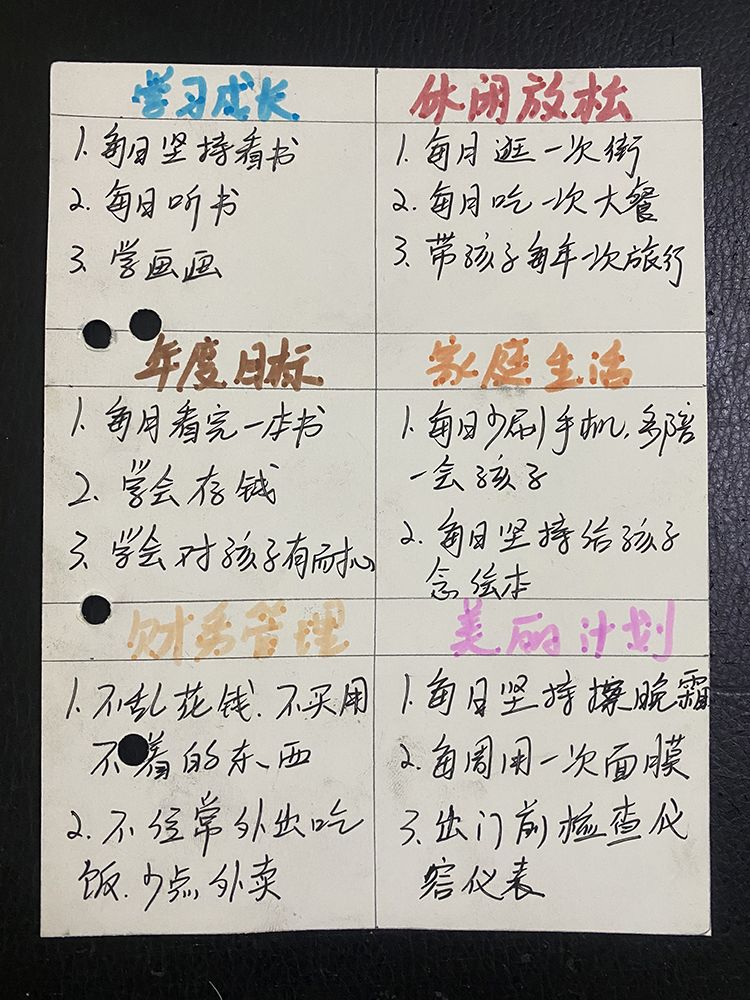 学习成长
1. 每日坚持看书
2. 每日听书
3. 学画画
休闲放松
1. 每月逛一次街
2. 每月吃一次大餐
3. 带孩子每年一次旅行
年度目标
1. 每月看完一本书
2. 学会存钱
3. 学会对孩子有耐心
家庭生活
1. 每日少刷手机,多陪
一会孩子
2. 每日坚持给孩子
念绘本
财务管理
1. 不乱花钱.不买用
不着的东西
2. 不经常外出吃
饭.少点外卖
美丽计划
1. 每日坚持擦晚霜
2. 每周用一次面膜
3. 出门前检查仪
容仪表